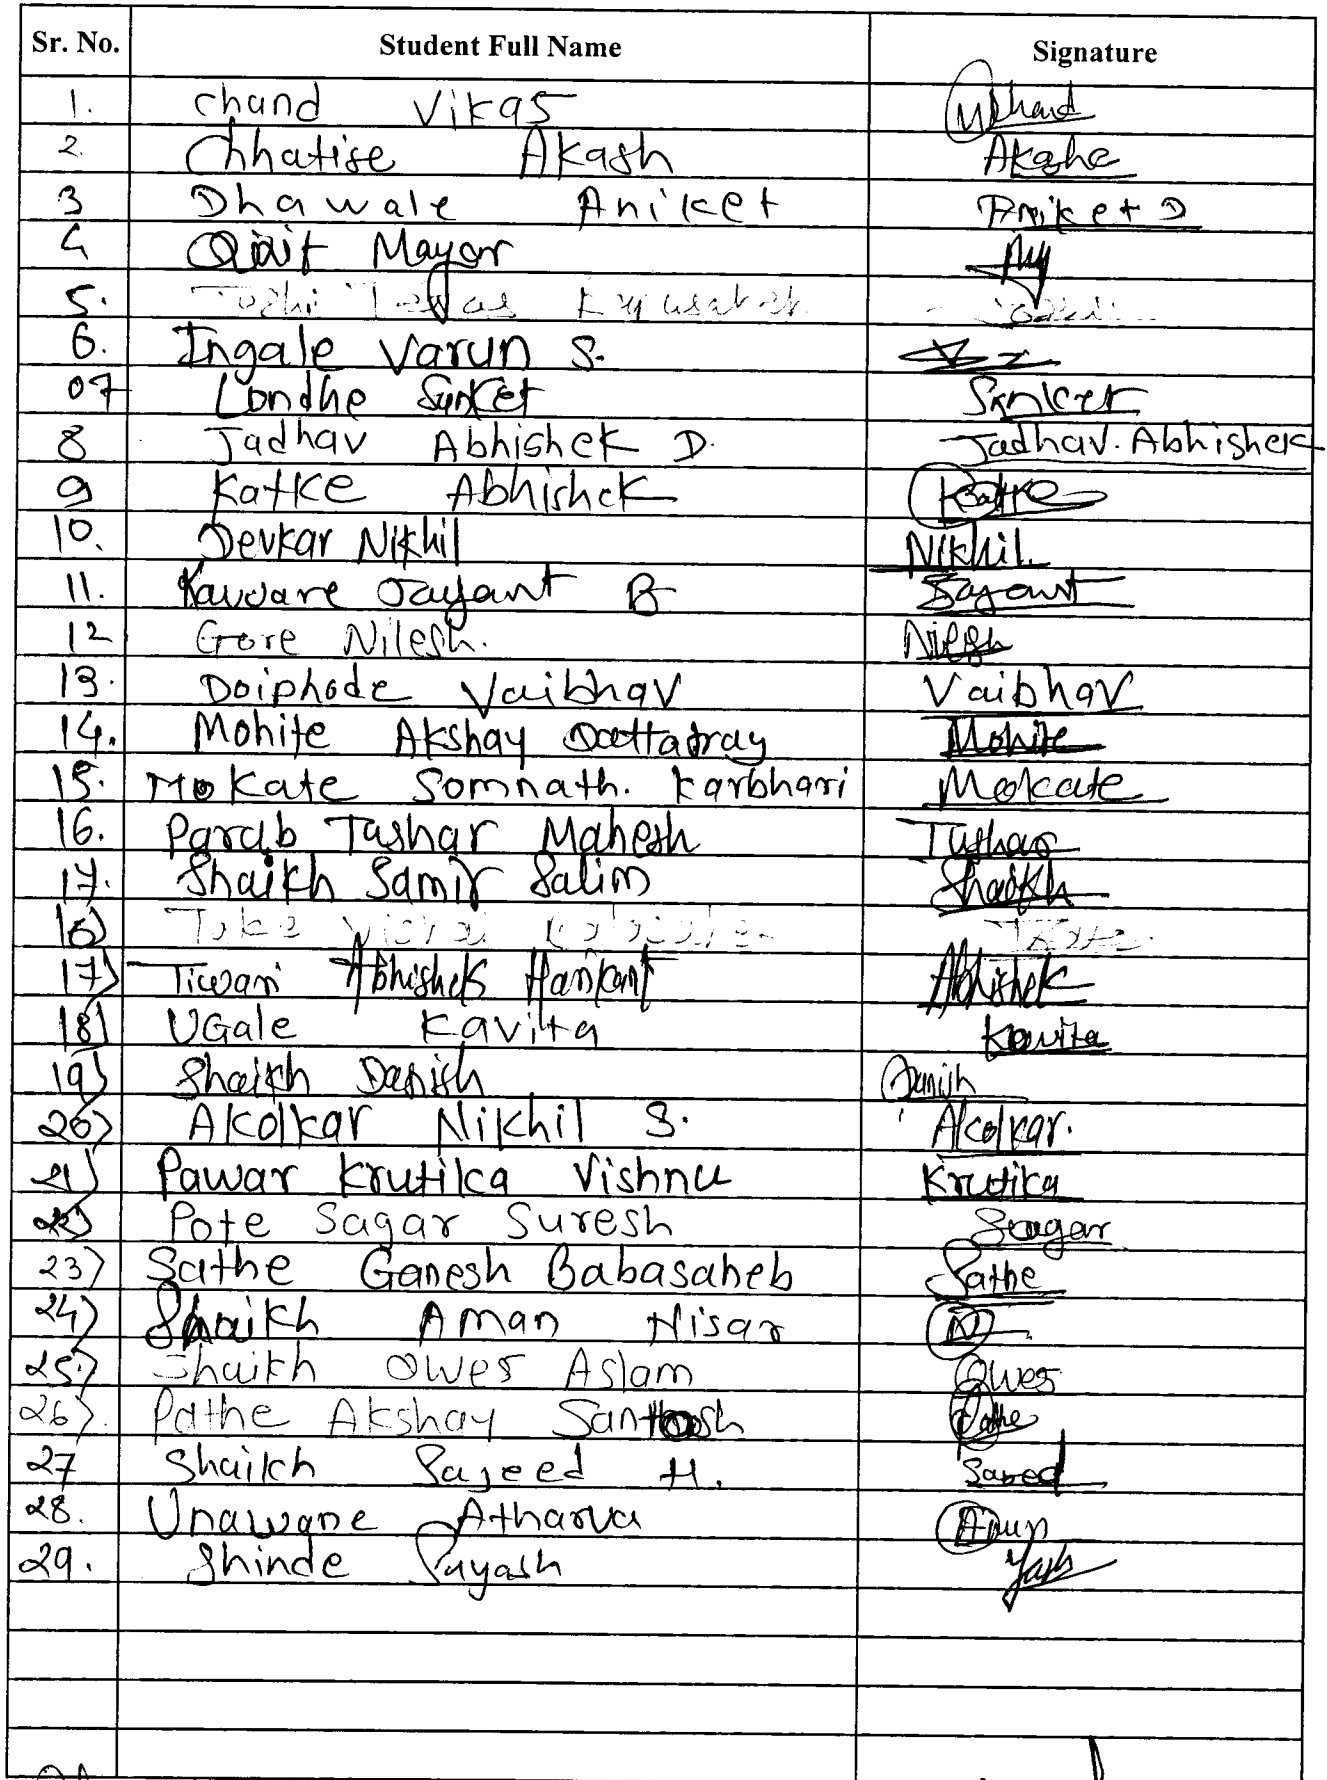 Sr. No. Student Full Name Signature
1. Chand Vikas Chand
2. Chhatise Akash Akashc
3 Dhawale Aniket Aniket D
4 Mayor
5. Joshi Tejas
6. Ingale Varun S.
07 Londhe Sanket Sanket
8 Jadhav Abhishek D. Jadhav. Abhishek
9 Katke Abhishek Katke
10. Devkar Nikhil Nikhil.
11. Kawware Jayant B Jayant
12 Gore Nilesh. Nilesh
13. Doiphode Vaibhav Vaibhav
14. Mohite Akshay Dattatray Mohite
15. Mokate Somnath. Karbhari Mokate
16. Parab Tushar Mahesh Tushar
17. Shaikh Samir Salim Shaikh
16)
17) Tiwari Abhishek Harikant Abhishek
18) UGale Kavita Kavita
19) Shaikh Danish Danish
20) Akolkar Nikhil S. Akolkar.
21) Pawar Krutika Vishnu Krutika
22) Pote Sagar Suresh Sagar
23) Sathe Ganesh Babasaheb Sathe
24) Shaikh Aman Nisar
25) Shaikh Owes Aslam Owes
26). Pathe Akshay Santosh Pathe
27 Shaikh Sajeed H. Sajeed
28. Unawane Atharva
29. Shinde Suyash Yash